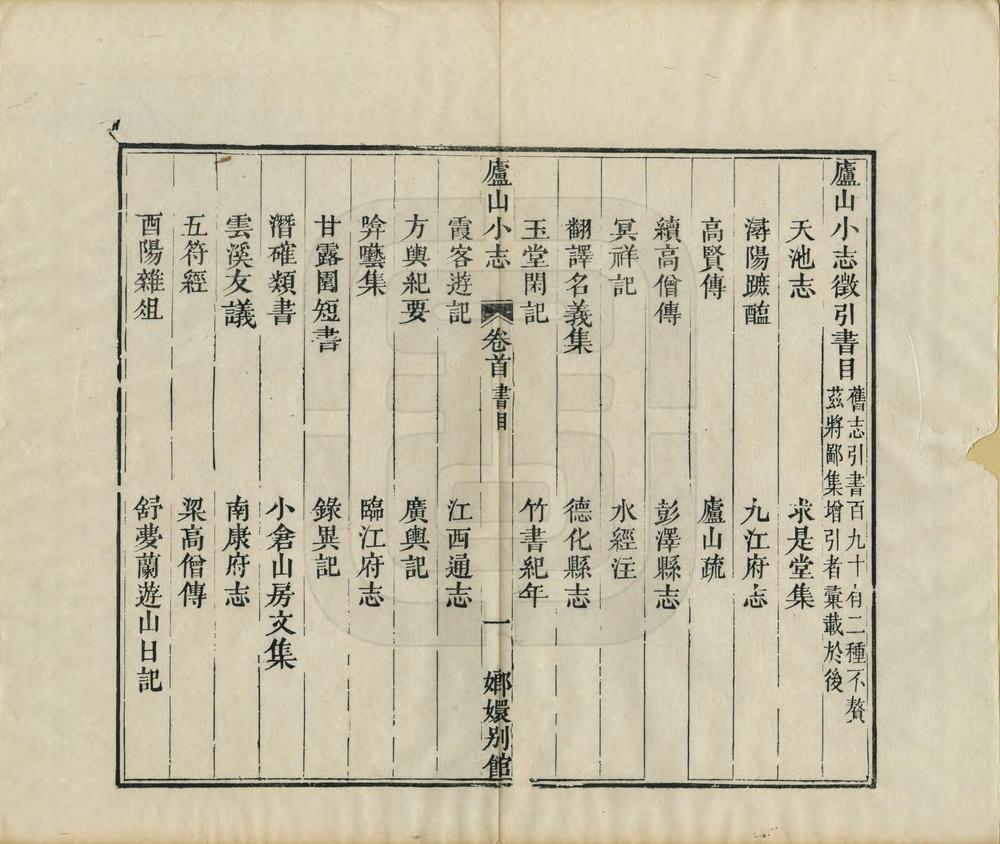 廬山小志徵引書目 舊志引書百九十有二種不贅
茲將鄙集增引者彙載於後
天池志 求是堂集
潯陽蹠醢 九江府志
高賢傳 廬山疏
續高僧傳 彭澤縣志
冥祥記 水經注
翻譯名義集 德化縣志
玉堂閑記 竹書紀年
廬山小志 卷首 書目 一 嫏嬛別館
霞客遊記 江西通志
方輿紀要 廣輿記
甘露園短書 錄異記
潛確類書 小倉山房文集
雲溪友議 南康府志
五符經 梁高僧傳
酉陽雜俎 舒夢蘭遊山日記
臨江府志